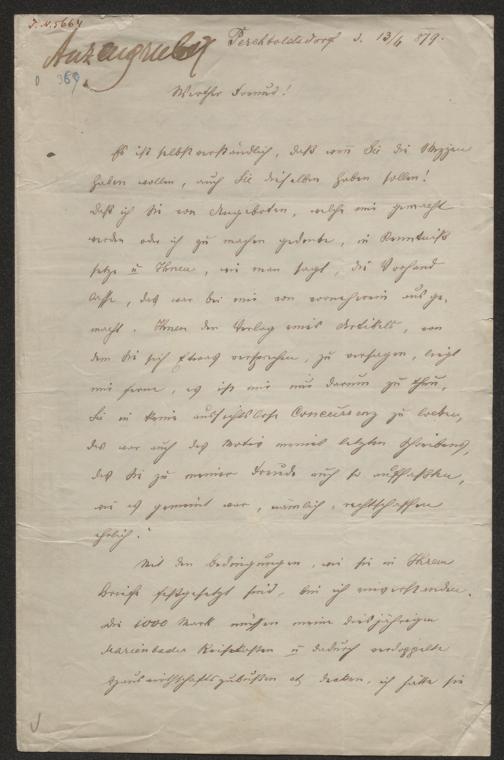 J. N. 5664
Anzengruber
369
Perchtoldsdorf d. 13/4 879.
Werther Freund!
Es ist selbstverständlich, daß wenn Sie die Skizzen
haben wollen, auch Sie dieselben haben sollen!
Daß ich Sie von Angeboten, welche mir gemacht
werden oder ich zu machen gedenke, in Kenntniß
setze u Ihnen, wie man sagt, die Vorhand
lasse, das war bei mir von vorneherein ausge-
macht. Ihnen den Verlag eines Artikels, von
dem Sie sich Etwas versprechen, zu versagen, liegt
mir ferne, es ist mir nur darum zu thun,
Sie in keine aussichtslose Concurrenz zu locken,
das war auch das Motiv meines letzten Schreibens,
das Sie zu meiner Freude auch so auffaßten,
wie es gemeint war, nämlich: rechtschaffen
ehrlich.
Mit den Bedingungen, wie sie in Ihrem
Briefe festgesetzt sind, bin ich einverstanden.
Die 1000 Mark müssen meine diesjährigen
Marienbader Reisekosten u dadurch verdoppelte
Hauswirthschaftszubußen etc decken, ich hätte sie